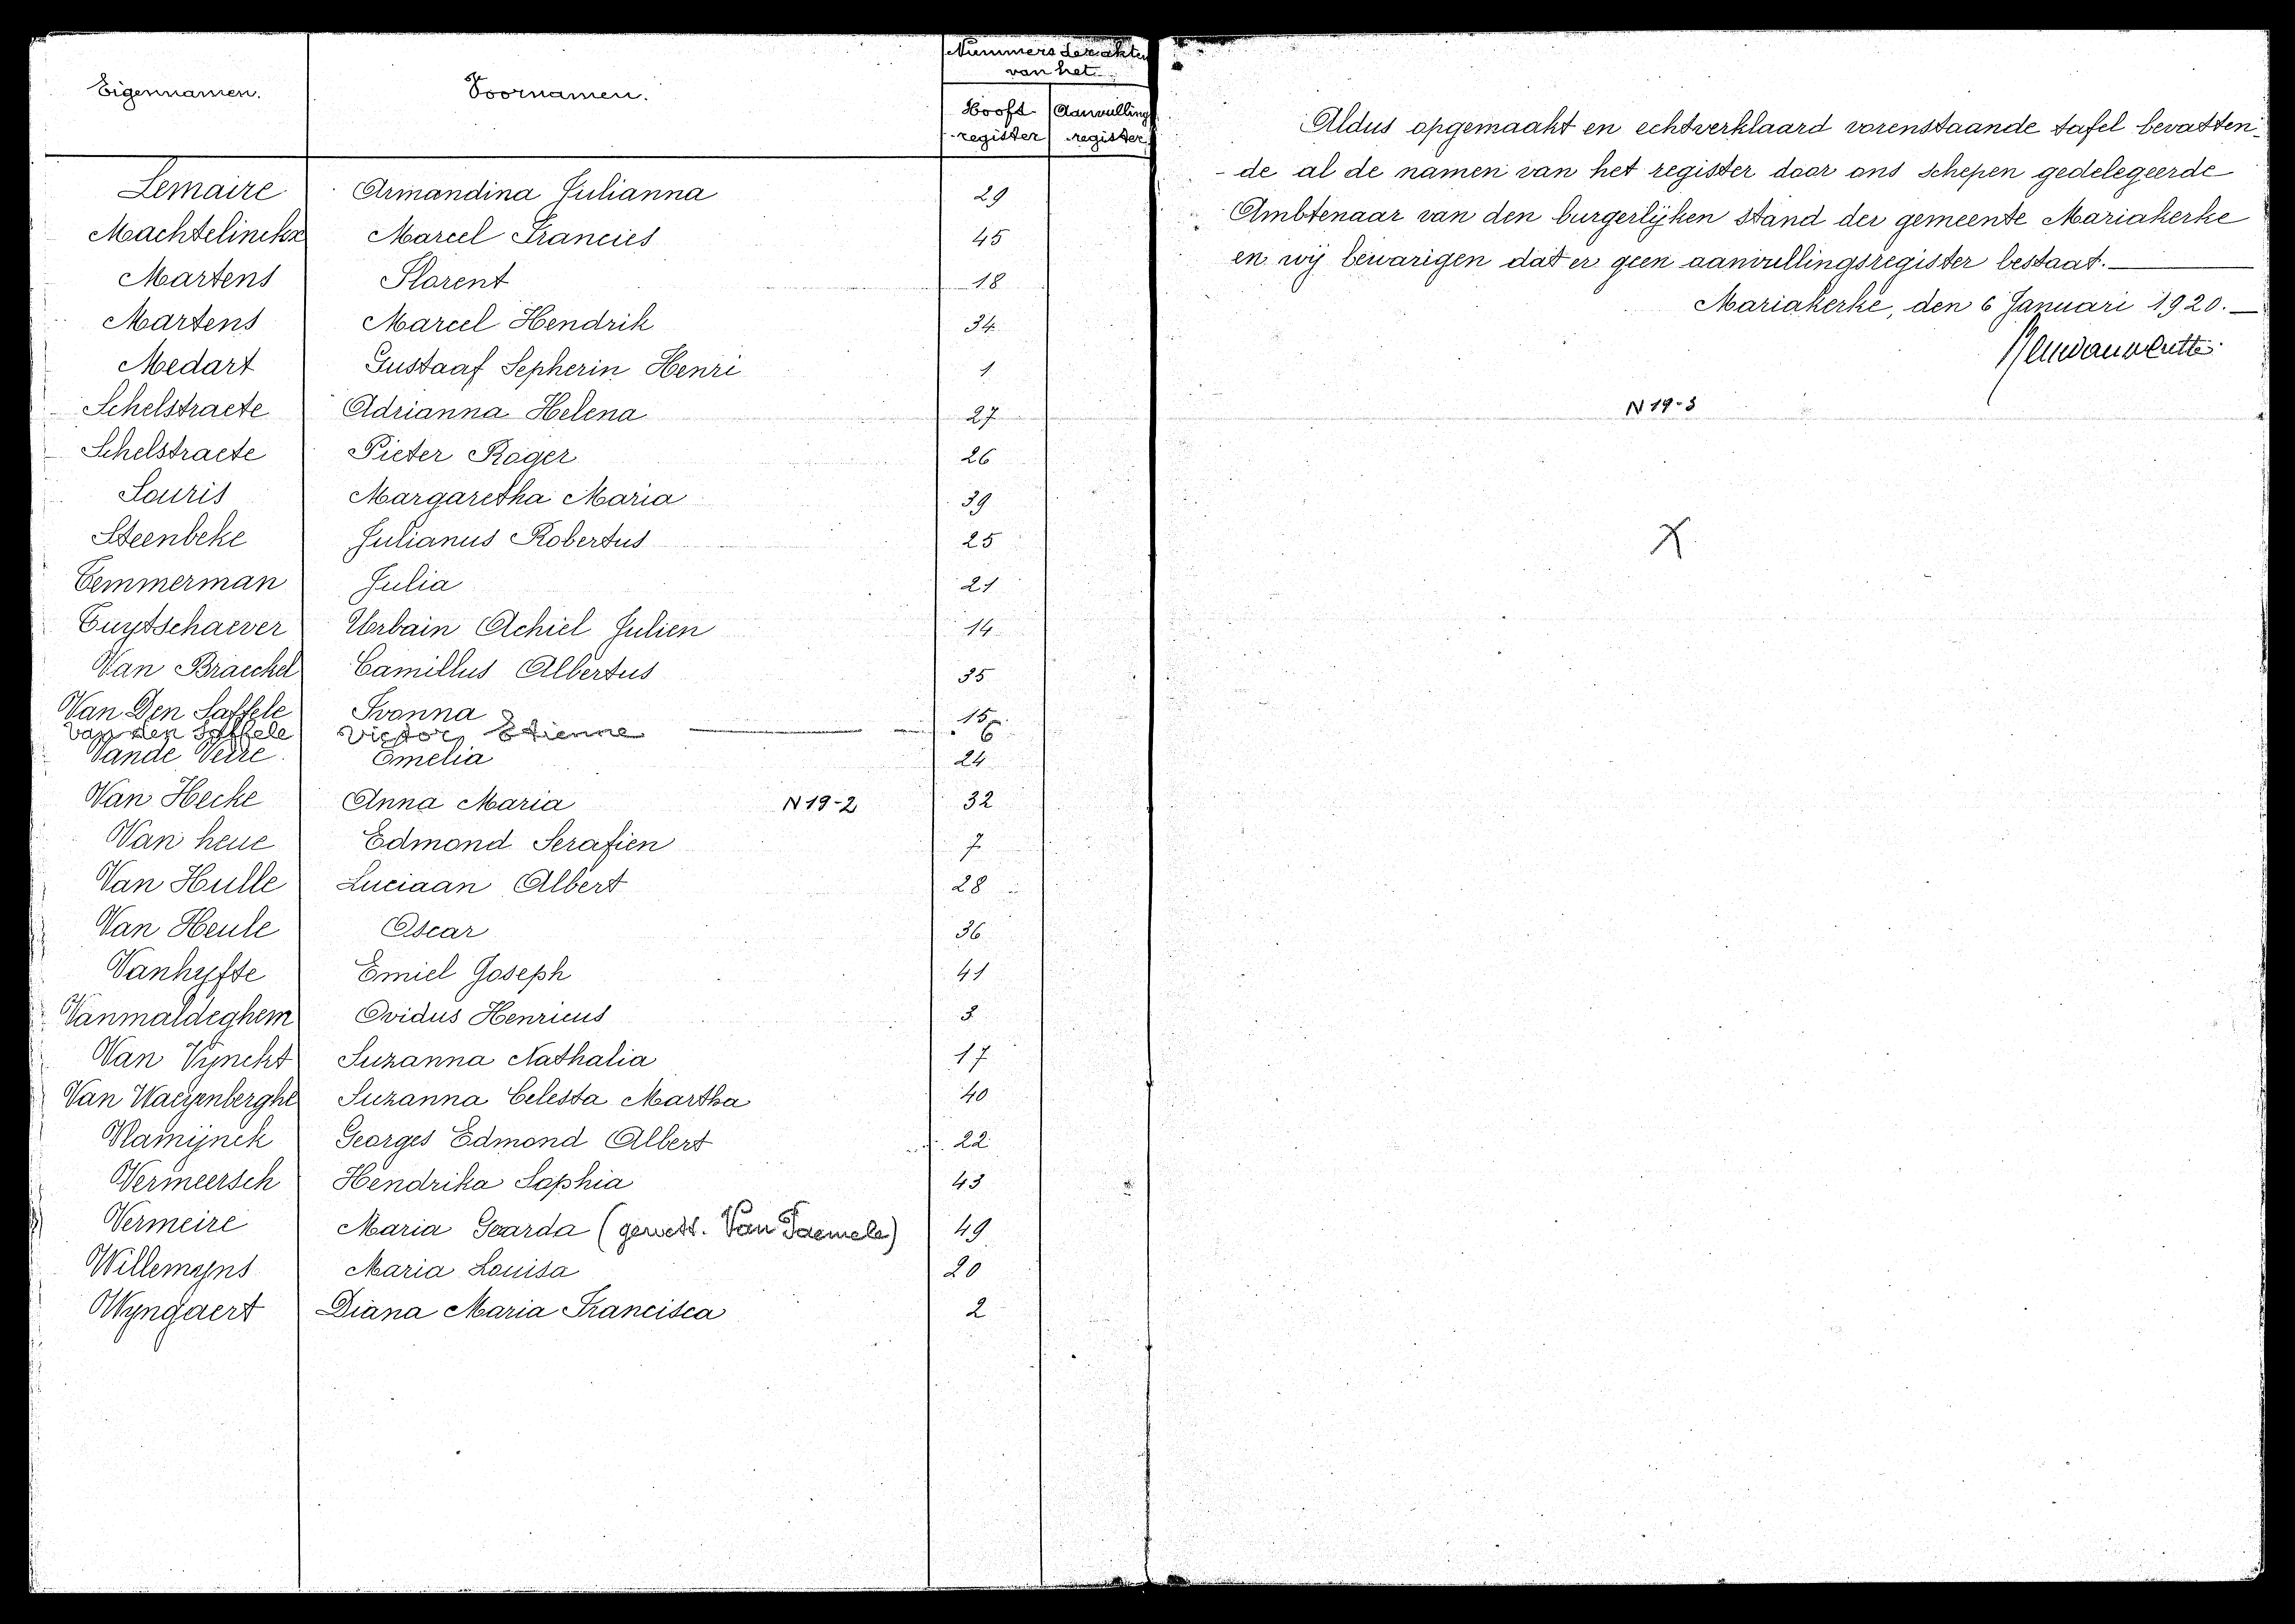 Nummers der akten
van het
Eigennamen. Voornamen.
Hooft register Aanvulling register
Lemaire Armandina Julianna 29
Machtelinckx Marcel Francies 45
Martens Florent 18
Martens Marcel Hendrik 34
Medart Gustaaf Sepherin Henri 1
Schelstraete Adrianna Helena 27
Schelstraete Pieter Roger 26
Souris Margaretha Maria 39
Steenbeke Julianus Robertus 25
Temmerman Julia 21
Tuytschaever Urbain Achiel Julien 14
Van Braeckel Camillus Albertus 35
Van Den Saffele Ivonna 15
Van den Saffele Victor Etienne 6
Vande Veire Emelia 24
Van Hecke Anna Maria N19-2 32
Van heue Edmond Serafien 7
Van Hulle Luciaan Albert 28
Van Heule Oscar 36
Vanhyfte Emiel Joseph 41
Vanmaldeghem Ovidus Henricus 3
Van Vynckt Suzanna Nathalia 17
Van Waeyenberghe Suzanna Celesta Martha 40
Vlamijnck Georges Edmond Albert 22
Vermeersch Hendrika Sophia 43
Vermeire Maria Gearda (gewett. Van Daemele) 49
Willemyns Maria Louisa 20
Wyngaert Diana Maria Francisca 2
Aldus opgemaakt en echtverklaard vorenstaande tafel bevatten-
-de al de namen van het register door ons schepen gedelegeerde
Ambtenaar van den burgerlijken stand der gemeente Mariakerke
en wij bevarigen dat er geen aanvullingsregister bestaat.
Mariakerke, den 6 Januari 1920.
N19-3
X